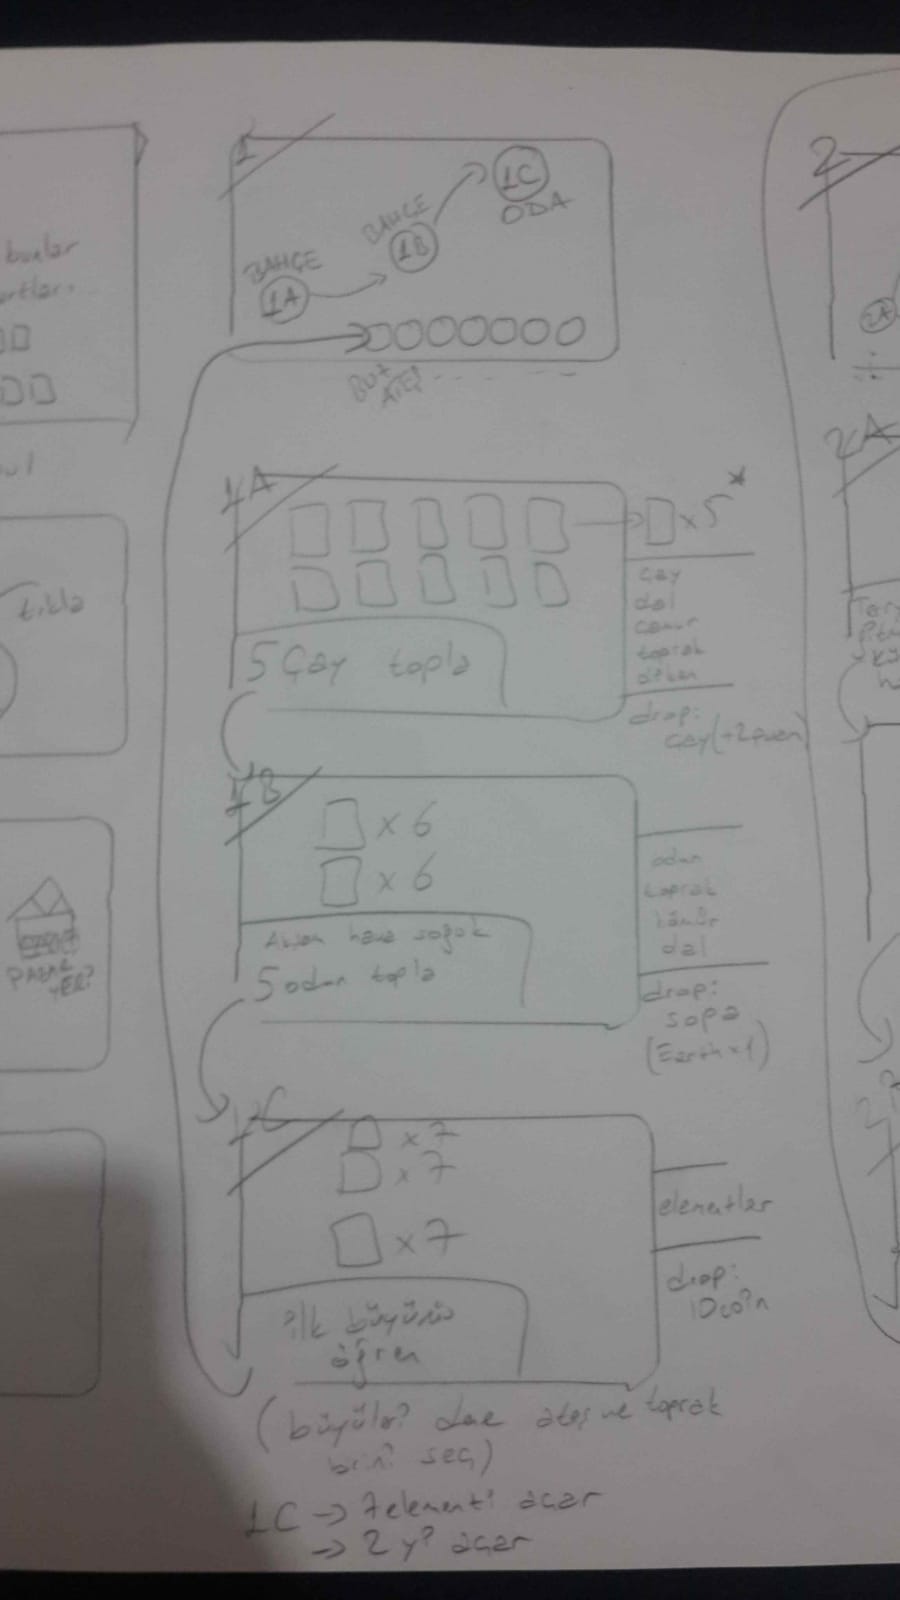 bunlar
tıkla
PAZAR
YERİ?
1
BAHÇE
1A
BAHÇE
1B
1C
ODA
1A
x5*
5 Çay topla
çay
dal
çamur
toprak
diken
drop:
çay(+2puan)
1B
x 6
x 6
Akşam hava soğuk
5 odun topla
odun
toprak
kömür
dal
drop:
sopa
(Earth x1)
1C
x 7
x 7
x 7
ilk büyünü
öğren
elementler
drop:
10 coin
ateş ve toprak
birini seç)
1C → 7 elementi açar
→ 2 yi açar
2
2A
2A